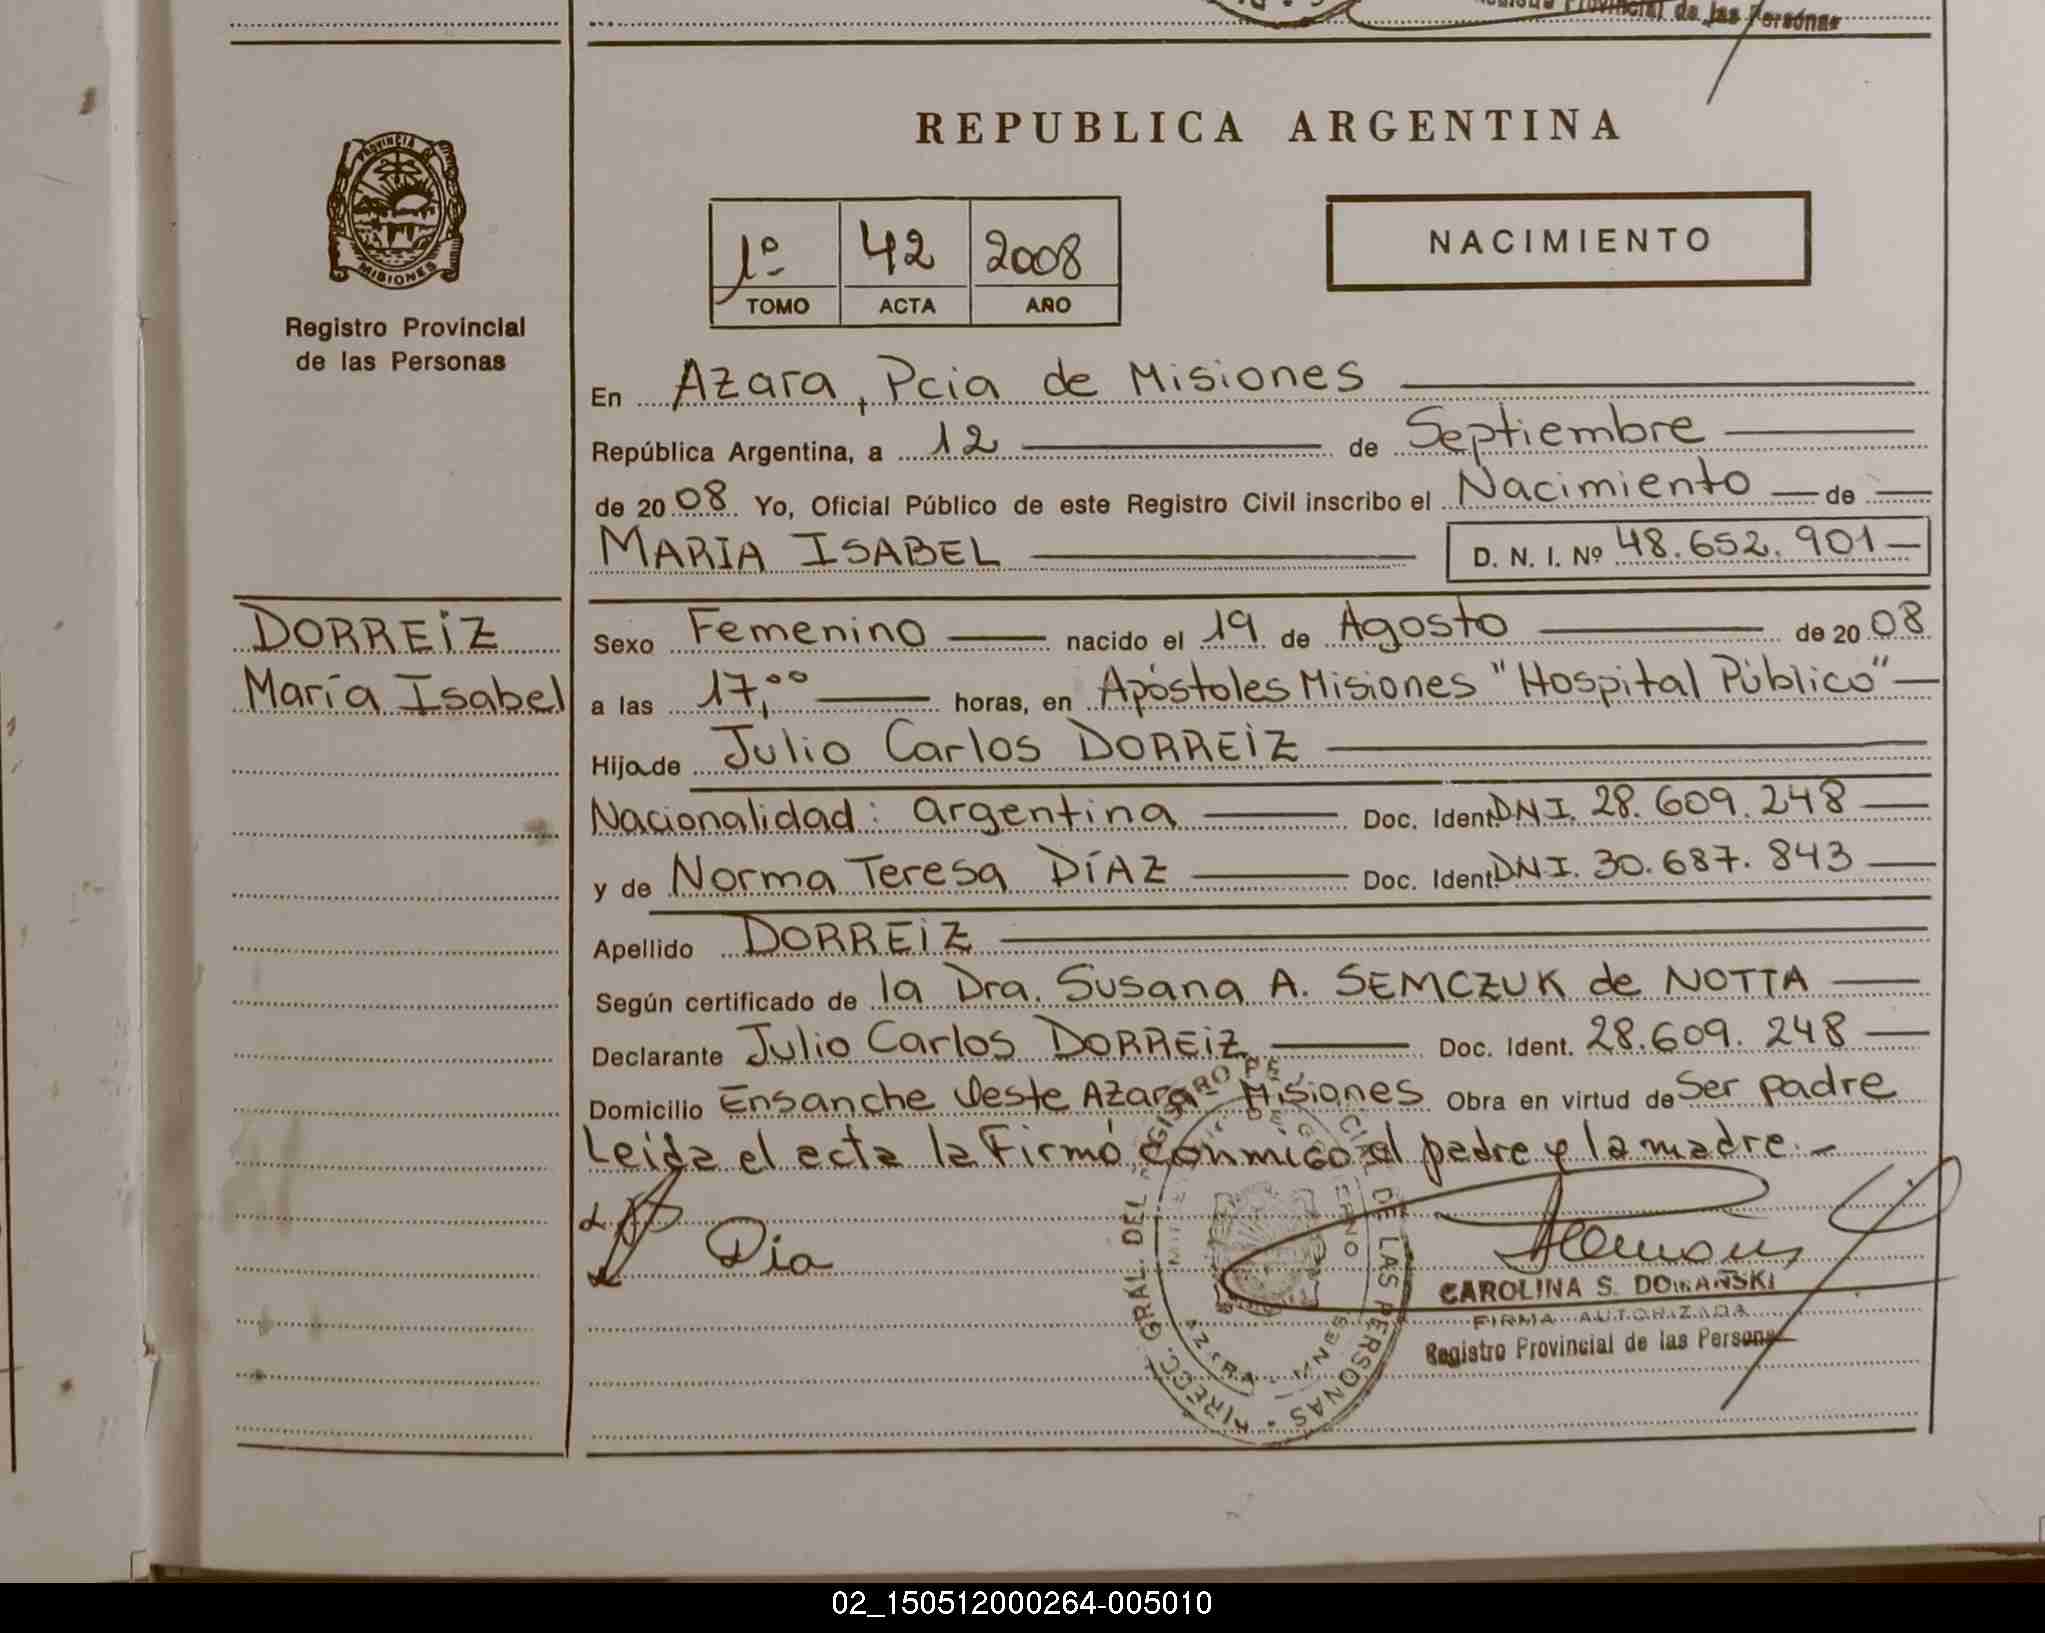 Provincial de las Personas
REPUBLICA ARGENTINA
PROVINCIA DE
MISIONES
Registro Provincial
de las Personas
1º 42 2008
TOMO ACTA AÑO
NACIMIENTO
En Azara, Pcia de Misiones
República Argentina, a 12 de Septiembre
de 2008 Yo, Oficial Público de este Registro Civil inscribo el Nacimiento de
MARIA ISABEL D. N. I. Nº 48.652.901
DORREIZ
María Isabel
Sexo Femenino nacido el 19 de Agosto de 2008
a las 17,⁰⁰ horas, en Apóstoles Misiones "Hospital Público"
Hija de Julio Carlos DORREIZ
Nacionalidad: argentina Doc. Ident. DNI. 28.609.248
y de Norma Teresa DÍAZ Doc. Ident. DNI. 30.687.843
Apellido DORREIZ
Según certificado de la Dra. Susana A. SEMCZUK de NOTTA
Declarante Julio Carlos DORREIZ Doc. Ident. 28.609.248
Domicilio Ensanche Oeste Azara - Misiones Obra en virtud de Ser padre
Leida el acta la Firmó conmigo el padre y la madre.-
Dia
CAROLINA S. DOMAÑSKI
FIRMA AUTORIZADA
Registro Provincial de las Persona
DIRECC. GRAL. DEL REGISTRO PROVINCIAL DE LAS PERSONAS
02_150512000264-005010